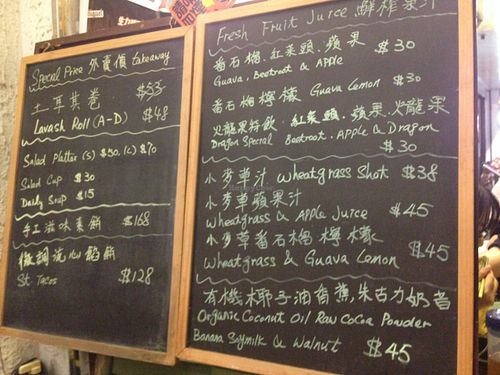 Special Price 外賣價 takeaway
土耳其卷 $53
Lavash Roll (A-D) $48
Salad Platter (S) $50, (L) $70
Salad Cup $30
Daily Soup $15
手工滋味素餅 $168
微調流心餡餅
St. Tacos $128
Fresh Fruit Juice 鮮榨果汁
番石榴.紅菜頭.蘋果 $30
Guava, Beetroot & Apple
番石榴檸檬 Guava Lemon $30
火龍果特飲.紅菜頭.蘋果.火龍果
Dragon Special Beetroot, Apple & Dragon
$30
小麥草汁 Wheatgrass Shot $38
小麥草蘋果汁
Wheatgrass & Apple Juice $45
小麥草番石榴檸檬
Wheatgrass & Guava Lemon $45
有機椰子油香蕉,朱古力奶昔
Organic Coconut Oil Raw Cocoa Powder
Banana Soymilk & Walnut $45